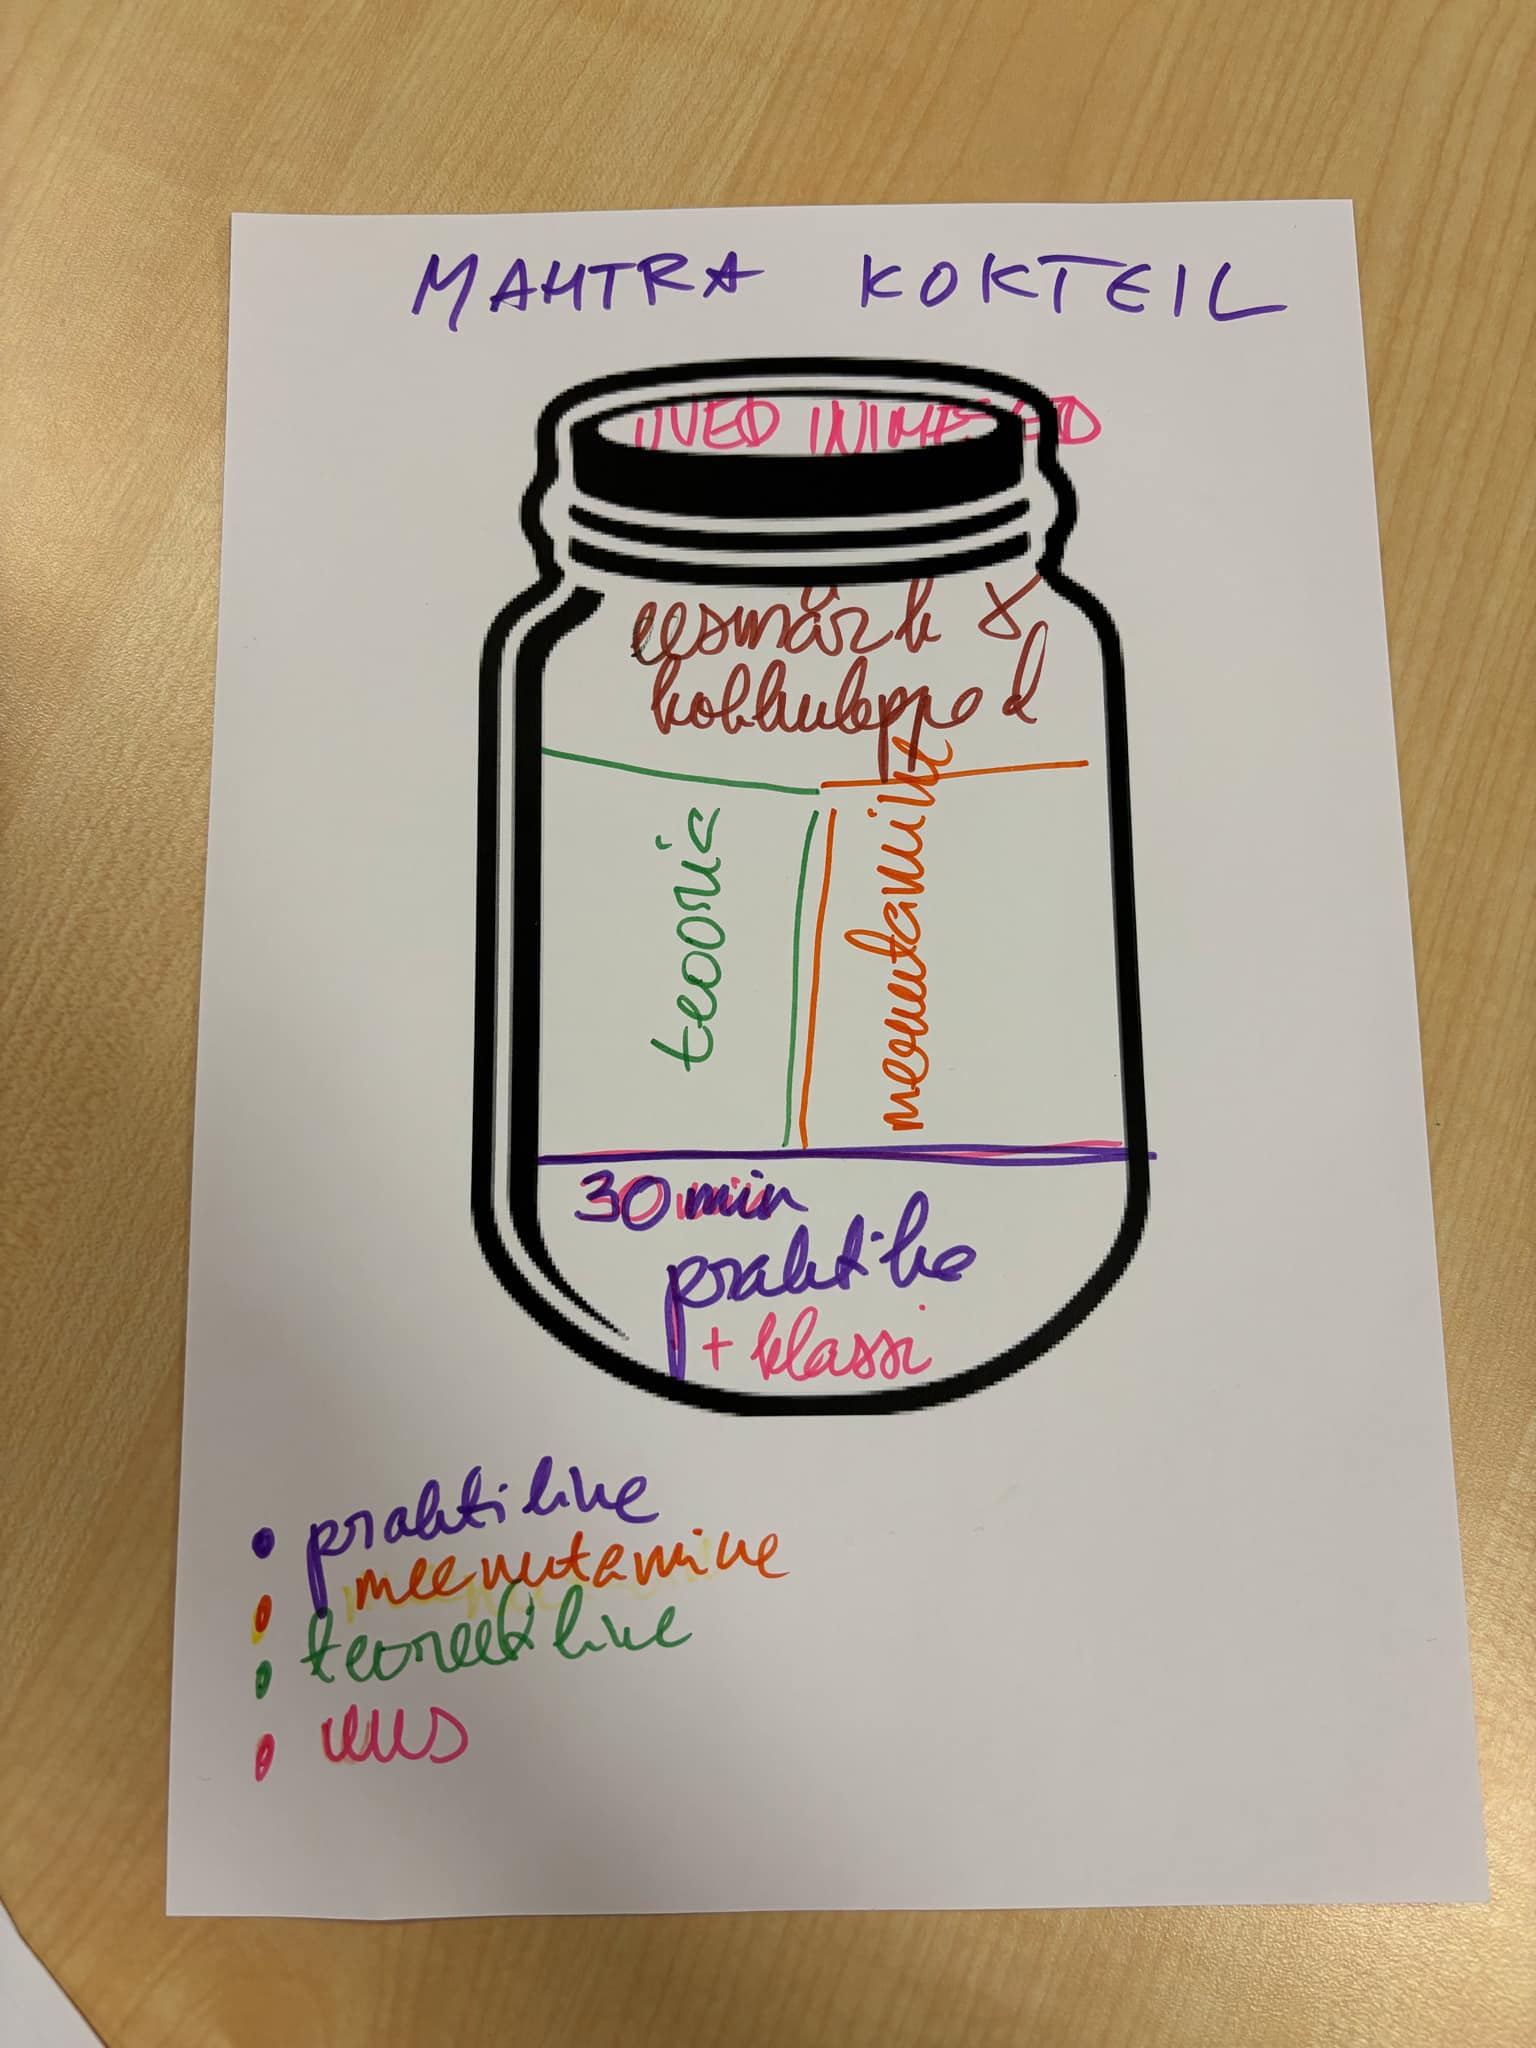 MAHTRA KOKTEIL
UUED INIMESED
eesmärk &
kokkulepped
teooria
meenutamine
30 min
praktike
+ klassi
• praktiline
• meenutamine
• teoreetiline
• uus